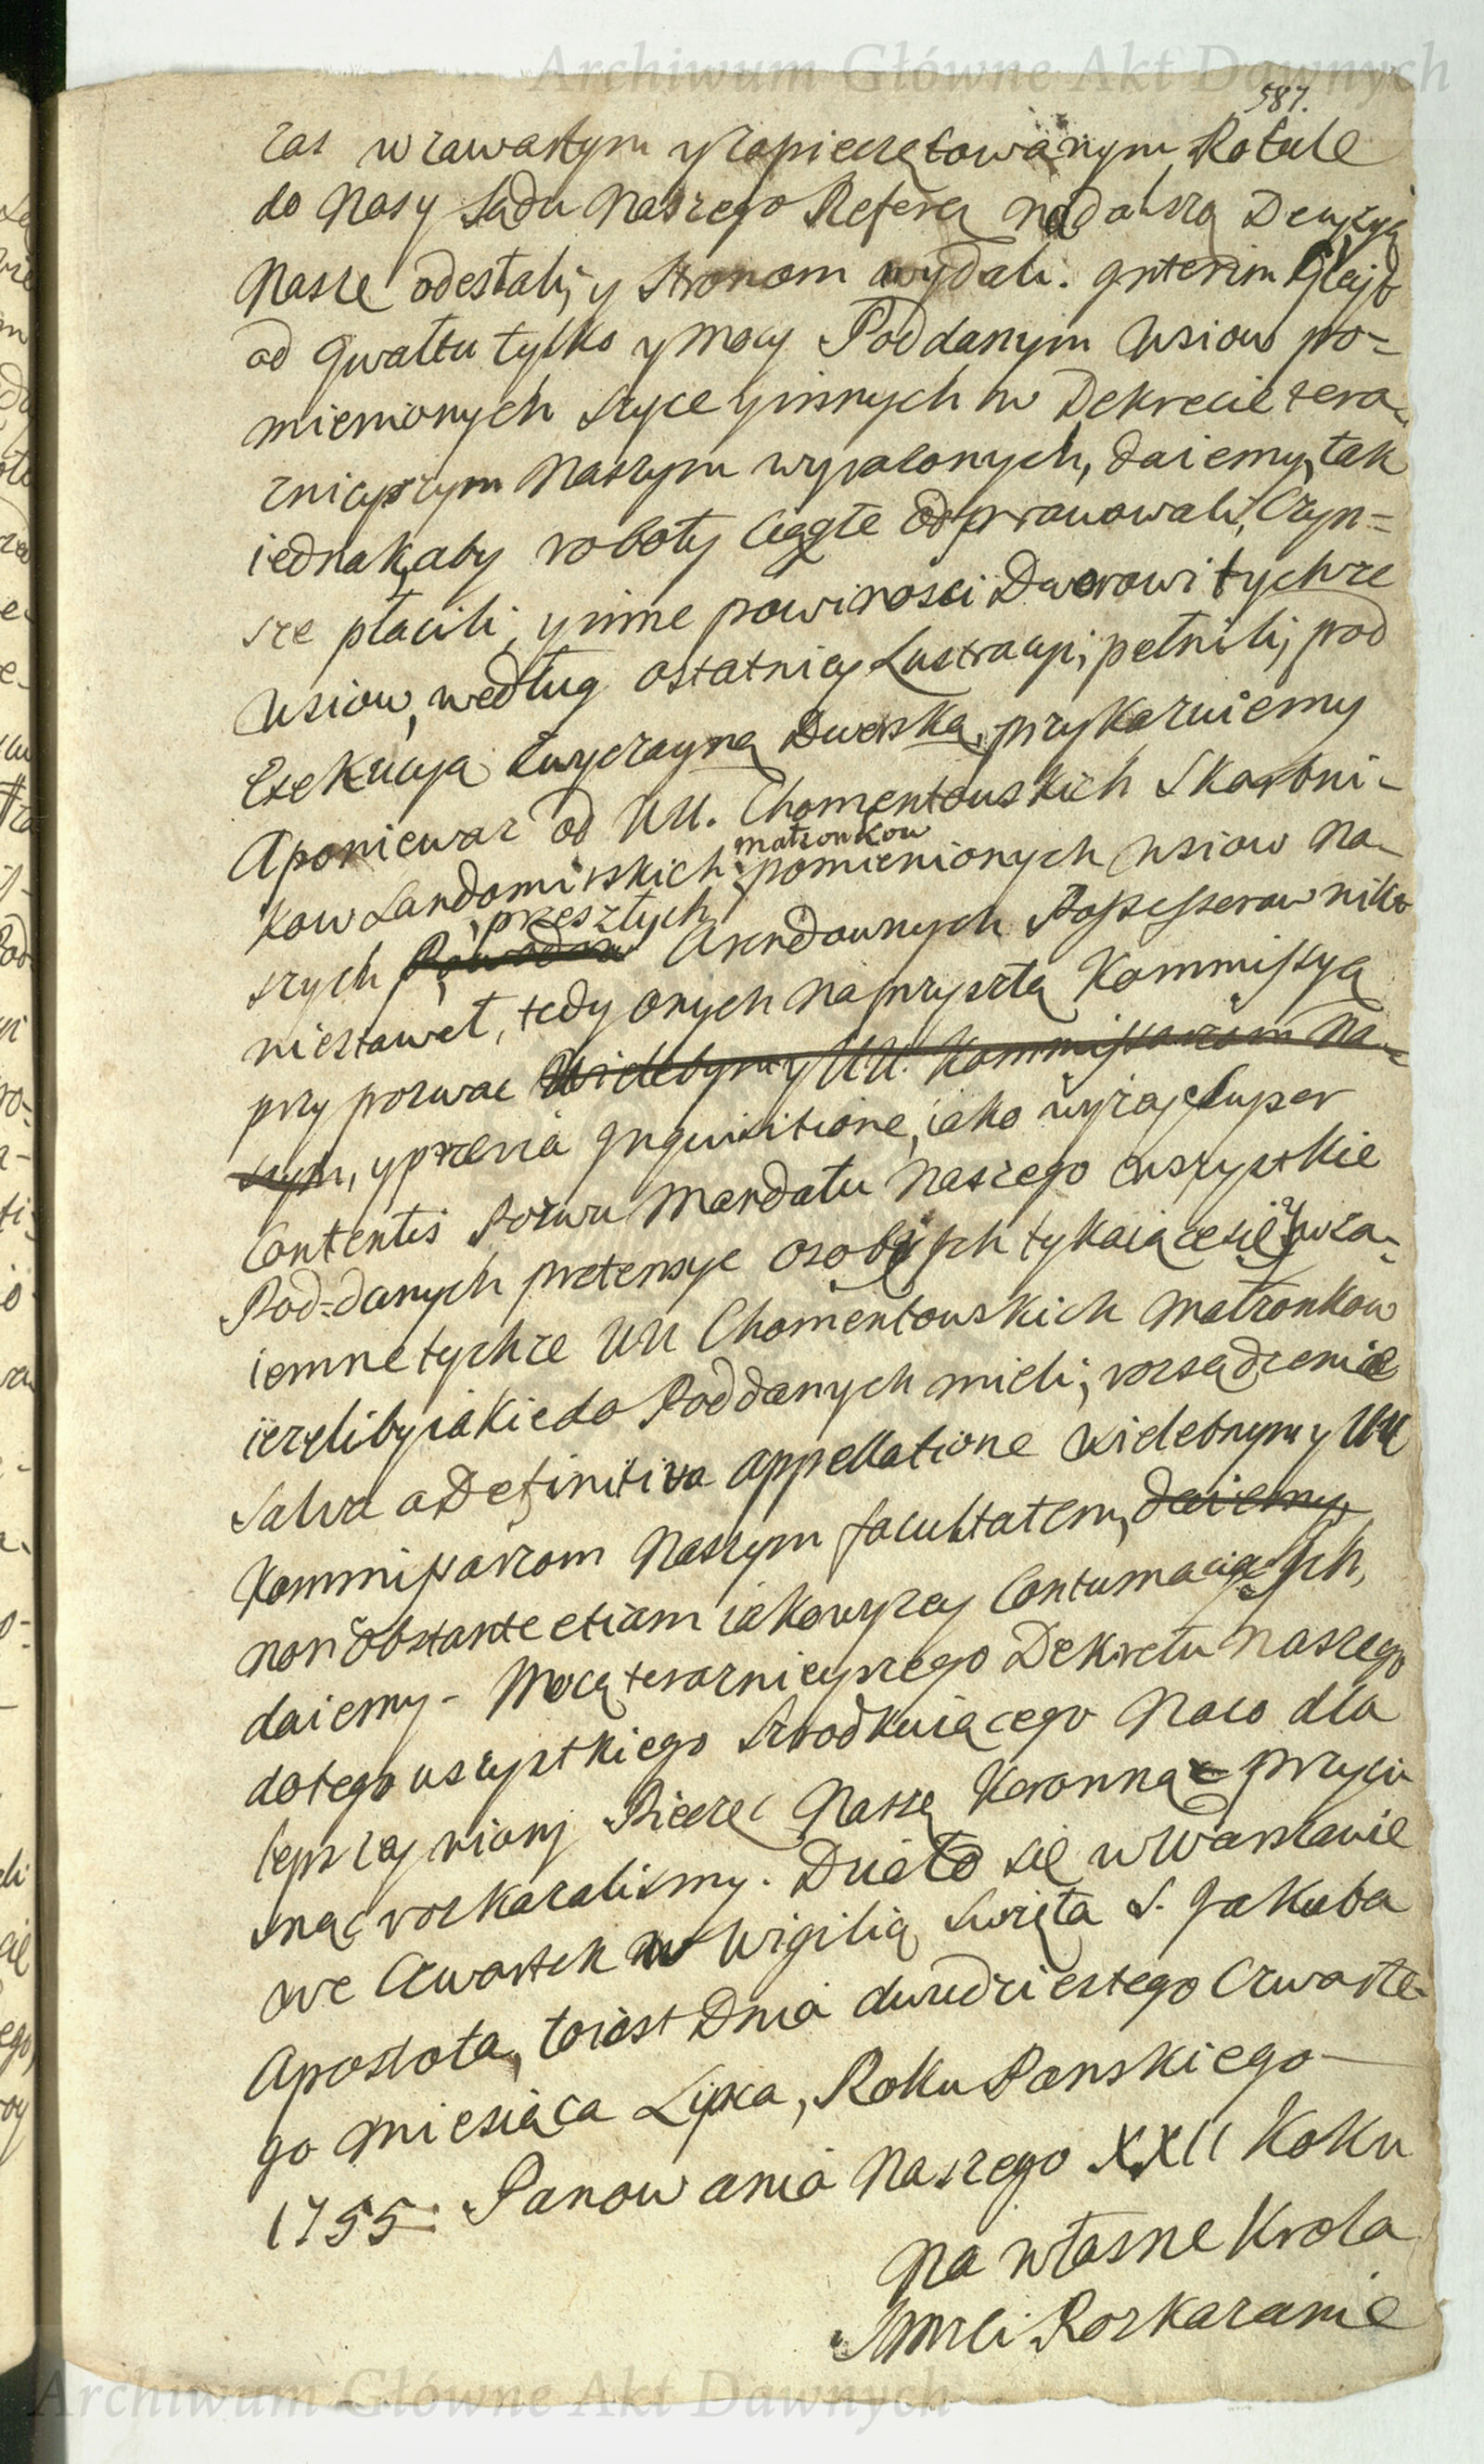 Archiwum Główne Akt Dawnych
587.
zas w zawartym y zapieczętowanym Rotule
do Nas y Sądu Naszego Refer: na dalszą Decyzyą
Nasze odesłali, y Stronom wydali. Interim Glejt
od gwałtu tylko y mocy Poddanym Wsiow po=
mienionych Szyce y innych w Dekrecie tera
znieyszym Naszym wyrazonych, daiemy, tak
iednak, aby roboty ciągłe odprawowali, Czyn=
sze płacili, y inne powinnosci Dworowi tychze
Wsiow, według ostatniey Lustracyi, pełnili, pod
Exekucyą zwyczayną Dworską, przykazuiemy
A poniewaz od UU. Chomentowskich Skarbni-
małzonkow
kow Sandomirskich pomienionych Wsiow Na-
przeszłych
szych Arendownych Possessorow nikt
niestawał, tedy onych na przyszłą Kommissyą
przypozwac Wielebnym y UU. Kommissarzom Na=
szym, y previa Inquisitione, iako wyzey super
Contentis Pozwu Mandatu Naszego wszystkie
Pod=danych pretensye osob ich tykaiące się y wza-
iemne tychze UU Chomentowskich Małzonkow
iezeliby iakie do Poddanych mieli, rozsądzenia
salva a Definitiva appellatione Wielebnym y UU
Kommissarzom Naszym facultatem, daiemy,
non obstante etiam iakowyzey Contumacią ich,
daiemy - Mocą teraznieyszego Dekretu Naszego
do tego wszystkiego srzodkuiącego Na co dla
lepszey wiary Pieczęc Naszą Koronną przyci
snąc rozkazalismy. Działo się w Warszawie
we Czwartek w Wigilią Swięta S. Jakuba
Apostoła, to iest Dnia dwudziestego Czwarte-
go Miesiąca Lipca, Roku Panskiego
1755. Panowania Naszego XXII Roku
Na własne Krola
Jmsci Rozkazanie
Archiwum Główne Akt Dawnych